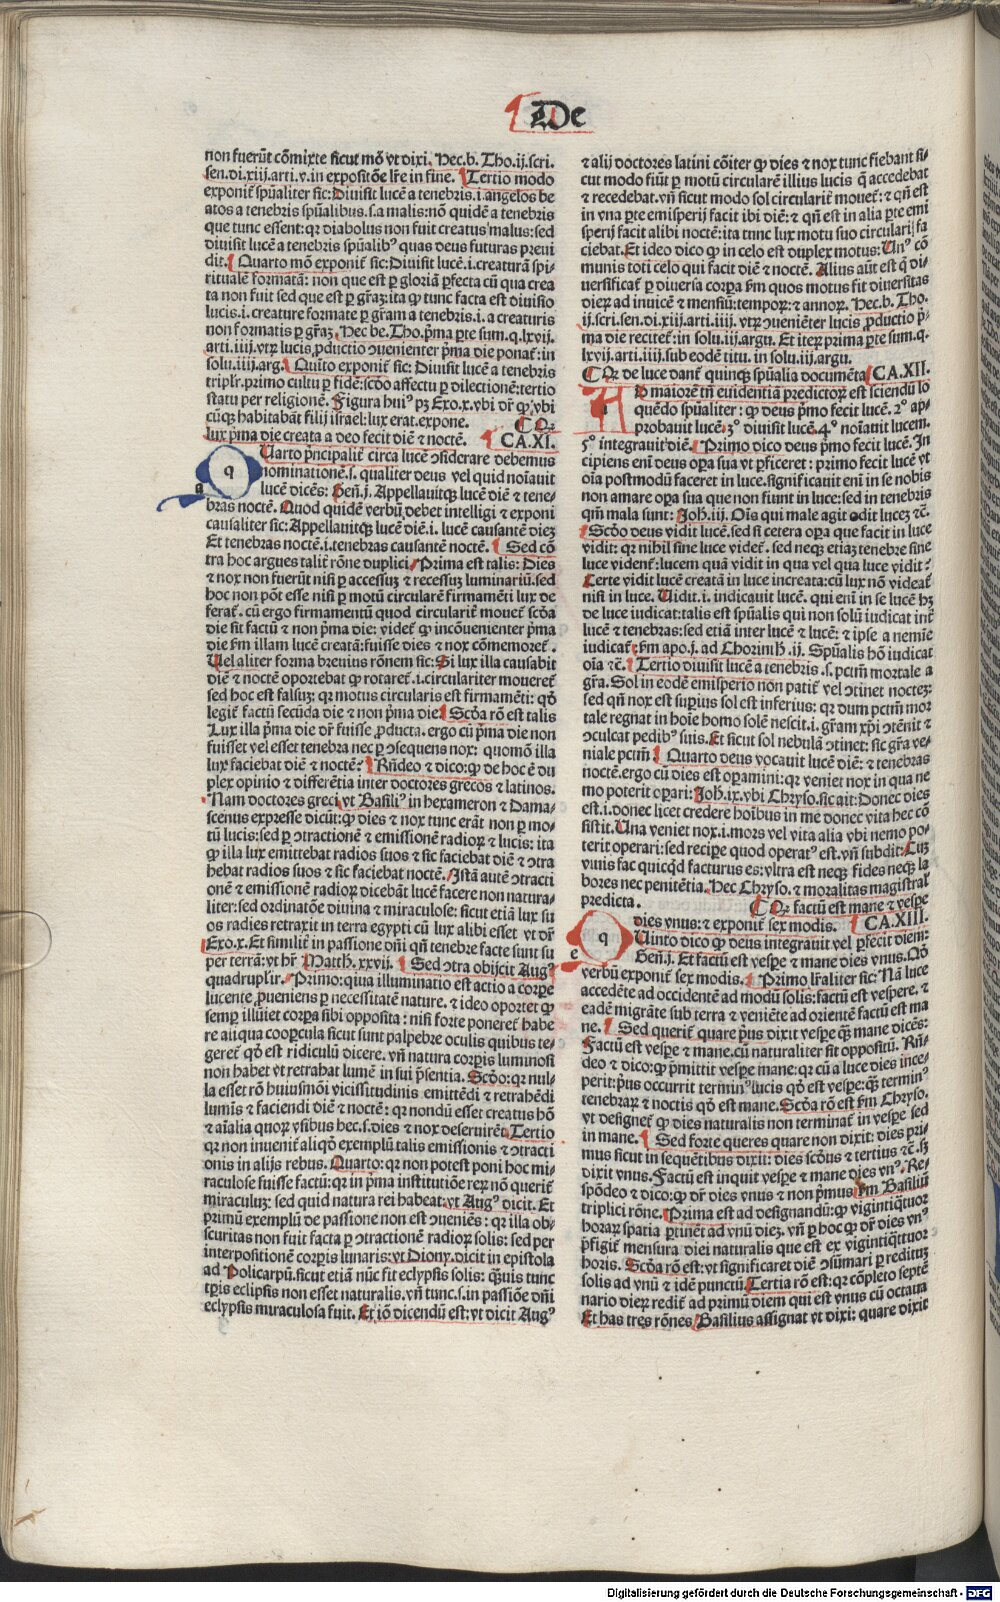 De
non fuerũt cõmixte sicut mõ vt dixi. Hec.b. Tho.ij.scri.
sen.di.xiij.arti.v.in expositõe lr̃e in fine. ¶ Tertio modo
exponit̃ spũaliter sic: Diuisit lucẽ a tenebris.i.angelos be
atos a tenebris spũalibus.s.a malis: nõ quidẽ a tenebris
que tunc essent: qr diabolus non fuit creatus malus: sed
diuisit lucẽ a tenebris spũalibꝰ quas deus futuras preui
dit. ¶ Quarto mõ exponit̃ sic: Diuisit lucẽ.i.creaturã spi-
ritualẽ formatã: non que est ꝑ gloriã ꝑfecta cũ qua crea
ta non fuit sed que est ꝑ gr̃az: ita ꝙ tunc facta est diuisio
lucis.i. creature formate ꝑ gr̃am a tenebris.i. a creaturis
non formatis ꝑ gr̃az. Hec be. Tho. p̃ma ꝑte sum.q.lxvij.
arti.iiij.vtꝝ lucis ꝓductio ɔuenienter p̃ma die ponat̃: in
solu.iiij.arg. ¶ Quĩto exponit̃ sic: Diuisit lucẽ a tenebris
triplr̃. primo cultu ꝑ fidẽ: scđo affectu ꝑ dilectionẽ: tertio
statu per religionẽ. Figura huiꝰ pz Exo.x. vbi dr̃ ꝙ, vbi
cũꝗ habitabãt filij israel: lux erat. expone. ¶ Qꝛ
lux p̃ma die creata a deo fecit diẽ ⁊ noctẽ. ¶ CA.XI.
q Uarto p̃ncipalit̃ circa lucẽ ɔsiderare debemus
nominationẽ.s. qualiter deus vel quid noĩauit
lucẽ dicẽs: Geñ.j. Appellauitꝗ lucẽ diẽ ⁊ tene-
bras noctẽ. Quod quidẽ verbũ debet intelligi ⁊ exponi
causaliter sic: Appellauitꝗ lucẽ diẽ.i. lucẽ causantẽ diez
Et tenebras noctẽ.i.tenebras causantẽ noctẽ. ¶ Sed cõ
tra hoc argues talit̃ rõne duplici. Prima est talis: Dies
⁊ nox non fuerũt nisi ꝑ accessuz ⁊ recessuz luminariũ. sed
hoc non põt esse nisi ꝑ motũ circularẽ firmamẽti lux de
ferat̃. cũ ergo firmamentũ quod circularit̃ mouet̃ scđa
die sit factũ ⁊ non p̃ma die: videt̃ ꝙ incõuenienter p̃ma
die ẜm illam lucẽ creatã: fuisse dies ⁊ nox cõmemoret̃.
Uel aliter forma breuius rõnem sic: Si lux illa causabit
diẽ ⁊ noctẽ oportebat ꝙ rotaret̃.i.circulariter moueret̃
sed hoc est falsuz: qr motus circularis est firmamẽti: qđ
legit̃ factũ secũda die ⁊ non p̃ma die. ¶ Scđa rõ est talis
Lux illa p̃ma die dr̃ fuisse ꝓducta. ergo cũ p̃ma die non
fuisset vel esset tenebra nec ꝑ ɔsequens nox: quomõ illa
lux faciebat diẽ ⁊ noctẽ? ¶ Rñdeo ⁊ dico: ꝙ de hoc ẽ du
plex opinio ⁊ differẽtia inter doctores grecos ⁊ latinos.
Nam doctores greci vt Basiliꝰ in hexameron ⁊ Dama-
scenus expresse dicũt: ꝙ dies ⁊ nox tunc erãt non ꝑ mo-
tũ lucis: sed ꝑ ɔtractionẽ ⁊ emissionẽ radioꝝ ⁊ lucis: ita
ꝙ illa lux emittebat radios suos ⁊ sic faciebat diẽ ⁊ ɔtra
hebat radios suos ⁊ sic faciebat noctẽ. Istã autẽ ɔtracti
onẽ ⁊ emissionẽ radioꝝ dicebãt lucẽ facere non natura-
liter: sed ordinatõe diuina ⁊ miraculose: sicut etiã lux su
os radies retraxit in terra egypti cũ lux alibi esset vt dr̃
Exo.x. Et similit̃ in passione dñi qñ tenebre facte sunt su
per terrã: vt hr̃. Matth.xxvij. ¶ Sed ɔtra obijcit Augꝰ
quadruplr̃. Primo: quia illuminatio est actio a corꝑe
lucente ꝓueniens ꝑ necessitatẽ nature. ⁊ ideo oportet ꝙ
semꝑ illũiet corꝑa sibi opposita: nisi forte poneret̃ habe
re aliqua cooꝑcula sicut sunt palpebre oculis quibus te-
geret̃ qđ est ridiculũ dicere. vñ natura corꝑis luminosi
non habet vt retrahat lumẽ in sui p̃sentia. Scđo: qr nul-
la esset rõ huiusmõi vicissitudinis emittẽdi ⁊ retrahẽdi
lumĩs ⁊ faciendi diẽ ⁊ noctẽ: qr nondũ esset creatus hõ
⁊ aĩalia quoꝝ vsibus hec.s.dies ⁊ nox deseruirẽt. Tertio
qr non inuenit̃ aliqđ exemplũ talis emissionis ⁊ ɔtracti
onis in alijs rebus. Quarto: qr non potest poni hoc mi-
raculose fuisse factũ: qr in p̃ma institutiõe reꝝ nõ querit̃
miraculuz: sed quid natura rei habeat: vt Augꝰ dicit. Et
primũ exemplũ de passione non est ɔueniẽs: qr illa ob-
scuritas non fuit facta ꝑ ɔtractionẽ radioꝝ solis: sed per
interpositionẽ corꝑis lunaris: vt Diony. dicit in epistola
ad Policarpũ. sicut etiã nũc fit eclypsis solis: q̃uis tunc
tꝑis eclipsis non esset naturalis. vñ tunc.s.in passiõe dñi
eclypsis miraculosa fuit. Et iõ dicendũ est: vt dicit Augꝰ
⁊ alij doctores latini cõiter ꝙ dies ⁊ nox tunc fiebant si-
cut modo fiũt ꝑ motũ circularẽ illius lucis q̃ accedebat
⁊ recedebat. vñ sicut modo sol circularit̃ mouet̃: ⁊ qñ est
in vna ꝑte emisperij facit ibi diẽ: ⁊ qñ est in alia ꝑte emi
sperij facit alibi noctẽ: ita tunc lux motu suo circulari fa
ciebat. Et ideo dico ꝙ in celo est duplex motus: Unꝰ cõ
munis toti celo qui facit diẽ ⁊ noctẽ. Alius aũt est q̃ di-
uersificat̃ ꝑ diuersa corꝑa ẜm quos motus fit diuersitas
dieꝝ ad inuicẽ ⁊ mensiũ: tempoꝝ: ⁊ annoꝝ. Hec.b. Tho.
ij.scri.sen.di.xiij.arti.iiij. vtꝝ ɔueniẽter lucis ꝓductio p̃-
ma die recitet̃: in solu.iij.argu. Et iteꝝ prima ꝑte sum.q.
lxvij.arti.iiij.sub eodẽ titu. in solu.iij.argu.
¶ Qꝛ de luce dant̃ quinꝗ spũalia documẽta ¶ CA.XII.
A D maiorẽ tñ euidentiã predictoꝝ est sciendũ lo
quẽdo spũaliter: ꝙ deus p̃mo fecit lucẽ. 2ꝰ ap-
probauit lucẽ. 3ꝰ diuisit lucẽ. 4ꝰ noĩauit lucem.
5ꝰ integrauit diẽ. ¶ Primo dico deus p̃mo fecit lucẽ. In
cipiens enĩ deus oꝑa sua vt ꝑficeret: primo fecit lucẽ vt
oĩa postmodũ faceret in luce. significauit enĩ in se nobis
non amare oꝑa sua que non fiunt in luce: sed in tenebris
qm̃ mala sunt: Joh.iii. Oĩs qui male agit odit lucez ⁊c̃.
¶ Scđo deus vidit lucẽ. sed si cetera oꝑa que facit in luce
vidit: qr nihil sine luce videt̃. sed neꝗ etiaz tenebre sine
luce vident̃: lucem quã vidit in qua vel qua luce vidit?
Certe vidit lucẽ creatã in luce increata: cũ lux nõ videat̃
nisi in luce. Uidit.i. indicauit lucẽ. qui enĩ in se lucẽ hz
de luce iudicat: talis est spũalis qui non solũ iudicat int̃
lucẽ ⁊ tenebras: sed etiã inter lucẽ ⁊ lucẽ: ⁊ ipse a nemie
iudicat̃: ẜm apo.j. ad Chorinth.ij. Spũalis hõ iudicat
oĩa ⁊c̃. ¶ Tertio diuisit lucẽ a tenebris .s. pctm̃ mortale a
gr̃a. Sol in eodẽ emisperio non patit̃ vel ɔtinet noctez:
sed qñ nox est suꝑius sol est inferius: qr dum pctm̃ mor
tale regnat in hoĩe homo solẽ nescit.i. gr̃am xp̃i ɔtẽnit ⁊
ɔculcat pedibꝰ suis. Et sicut sol nebulã ɔtinet: sic gr̃a ve-
niale pctm̃. ¶ Quarto deus vocauit lucẽ diẽ: ⁊ tenebras
noctẽ. ergo cũ dies est oꝑamini: qr veniet nox in qua ne
mo poterit oꝑari: Joh.ix. vbi Chryso. sic ait: Donec dies
est.i. donec licet credere hoĩbus in me donec vita hec cõ
sistit. Una veniet nox.i. mors vel vita alia vbi nemo po-
terit operari: sed recipe quod operatꝰ est. vñ subdit: Cuz
viuis fac quicqđ facturus es: vltra est neꝗ fides neꝗ la
bores nec penitẽtia. Hec Chryso. ⁊ moralitas magistral̃
predicta. ¶ Qꝛ factũ est mane ⁊ vesꝑe
dies vnus: ⁊ exponit̃ sex modis. ¶ CA.XIII.
q Uinto dico ꝙ deus integrauit vel ꝑfecit diem:
Geñ.j. Et factũ est vesꝑe ⁊ mane dies vnus. Qđ
verbũ exponit̃ sex modis. ¶ Primo lr̃aliter sic: Nã luce
accedẽte ad occidentẽ ad modũ solis: factũ est vespere. ⁊
eadẽ migrãte sub terra ⁊ veniẽte ad orientẽ factũ est ma
ne. ¶ Sed querit̃ quare p̃us dixit vesꝑe q̃ mane dicẽs:
Factũ est vesꝑe ⁊ mane. cũ naturaliter sit oppositũ. Rñ-
deo ⁊ dico: ꝙ p̃mittit vesꝑe mane: qr cũ a luce dies ince-
perit: p̃us occurrit terminꝰ lucis qđ est vesꝑe: q̃ terminꝰ
tenebraꝝ ⁊ noctis qđ est mane. Scđa rõ est ẜm Chryso.
vt designet̃ ꝙ dies naturalis non terminat̃ in vesꝑe sed
in mane. ¶ Sed forte queres quare non dixit: dies pri-
mus sicut in sequẽtibus dixit: dies scđus ⁊ tertius ⁊c̃. sz
dixit vnus. Factũ est inquit vesꝑe ⁊ mane dies vnꝰ. Re-
spõdeo ⁊ dico: ꝙ dr̃ dies vnus ⁊ non p̃mus ẜm Basiliũ
triplici rõne. Prima est ad designandũ: ꝙ vigintiq̃tuor
horaꝝ spatia ꝑtinẽt ad vnũ diez. vñ ꝑ hoc ꝙ dr̃ dies vnꝰ
p̃figit̃ mensura diei naturalis que est ex vigintiq̃tuor
horis. Scđa rõ est: vt significaret diẽ ɔsũmari ꝑ reditũz
solis ad vnũ ⁊ idẽ punctũ. Tertia rõ est: qr cõpleto septẽ
nario dieꝝ redit̃ ad primũ diem qui est vnus cũ octaua
Et has tres rõnes Basilius assignat vt dixi: quare dixit
Digitalisierung gefördert durch die Deutsche Forschungsgemeinschaft - DFG